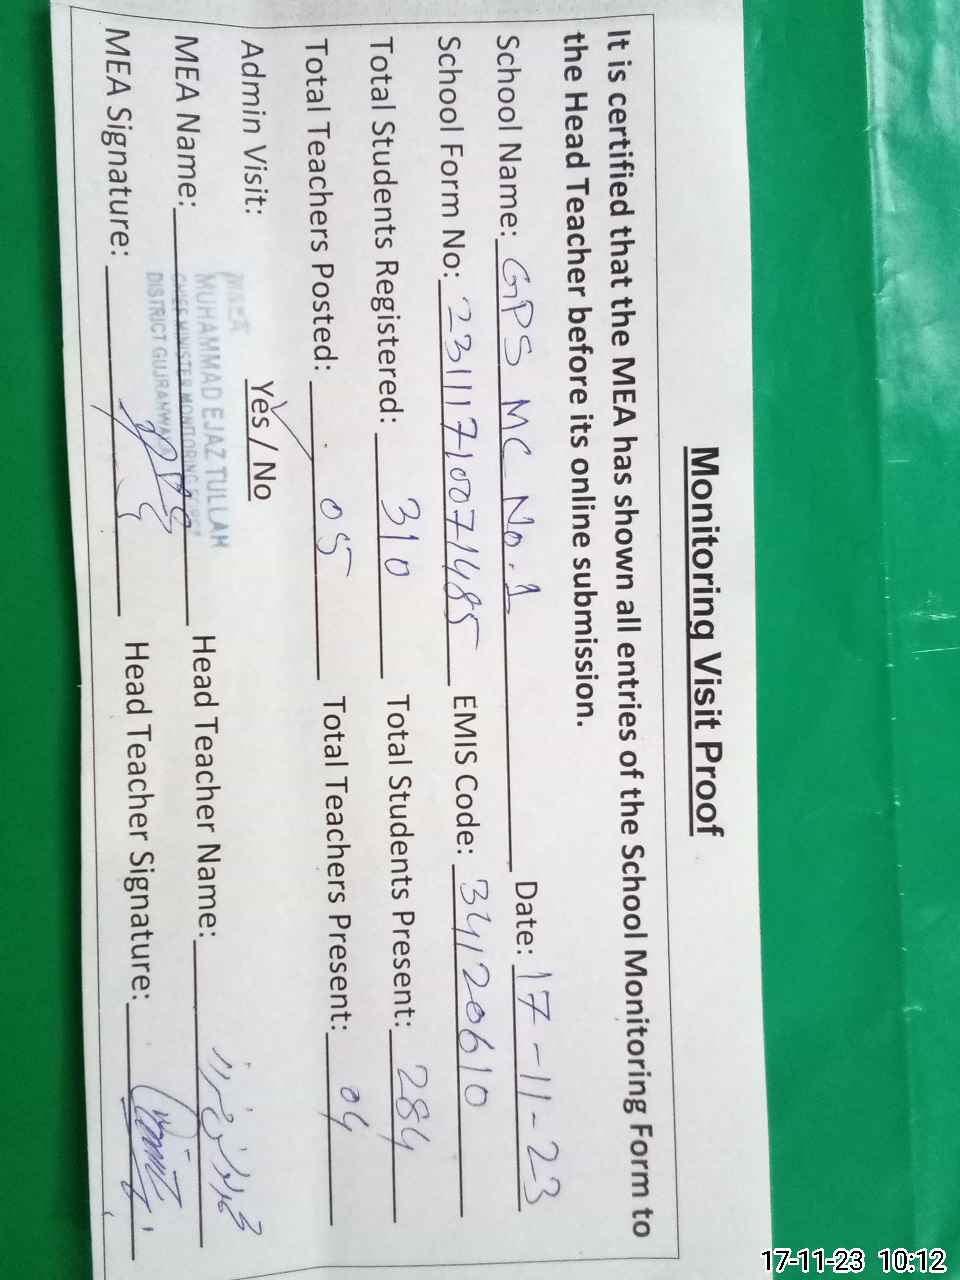 Monitoring Visit Proof
It is certified that the MEA has shown all entries of the School Monitoring Form to
the Head Teacher before its online submission.
School Name: GPS MC No.1 Date: 17-11-23
School Form No: 23111710071485 EMIS Code: 34120610
Total Students Registered: 310 Total Students Present: 284
Total Teachers Posted: 05 Total Teachers Present: 04
Admin Visit: Yes / No
MUHAMMAD EJAZ TULLAH
CHIEF MINISTER MONITORING FORCE
DISTRICT GUJRANWALA
MEA Name: Head Teacher Name:
MEA Signature: Head Teacher Signature:
17-11-23 10:12